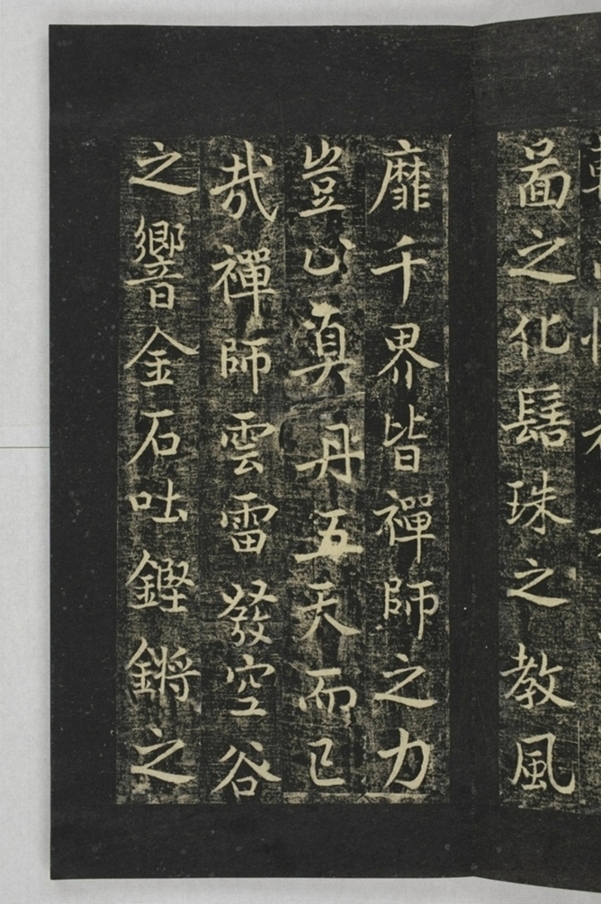 啚之化髻珠之教風
靡千界皆禪師之力
豈止真丹五天而已
哉禪師雲雷發空谷
之響金石吐鏗鏘之